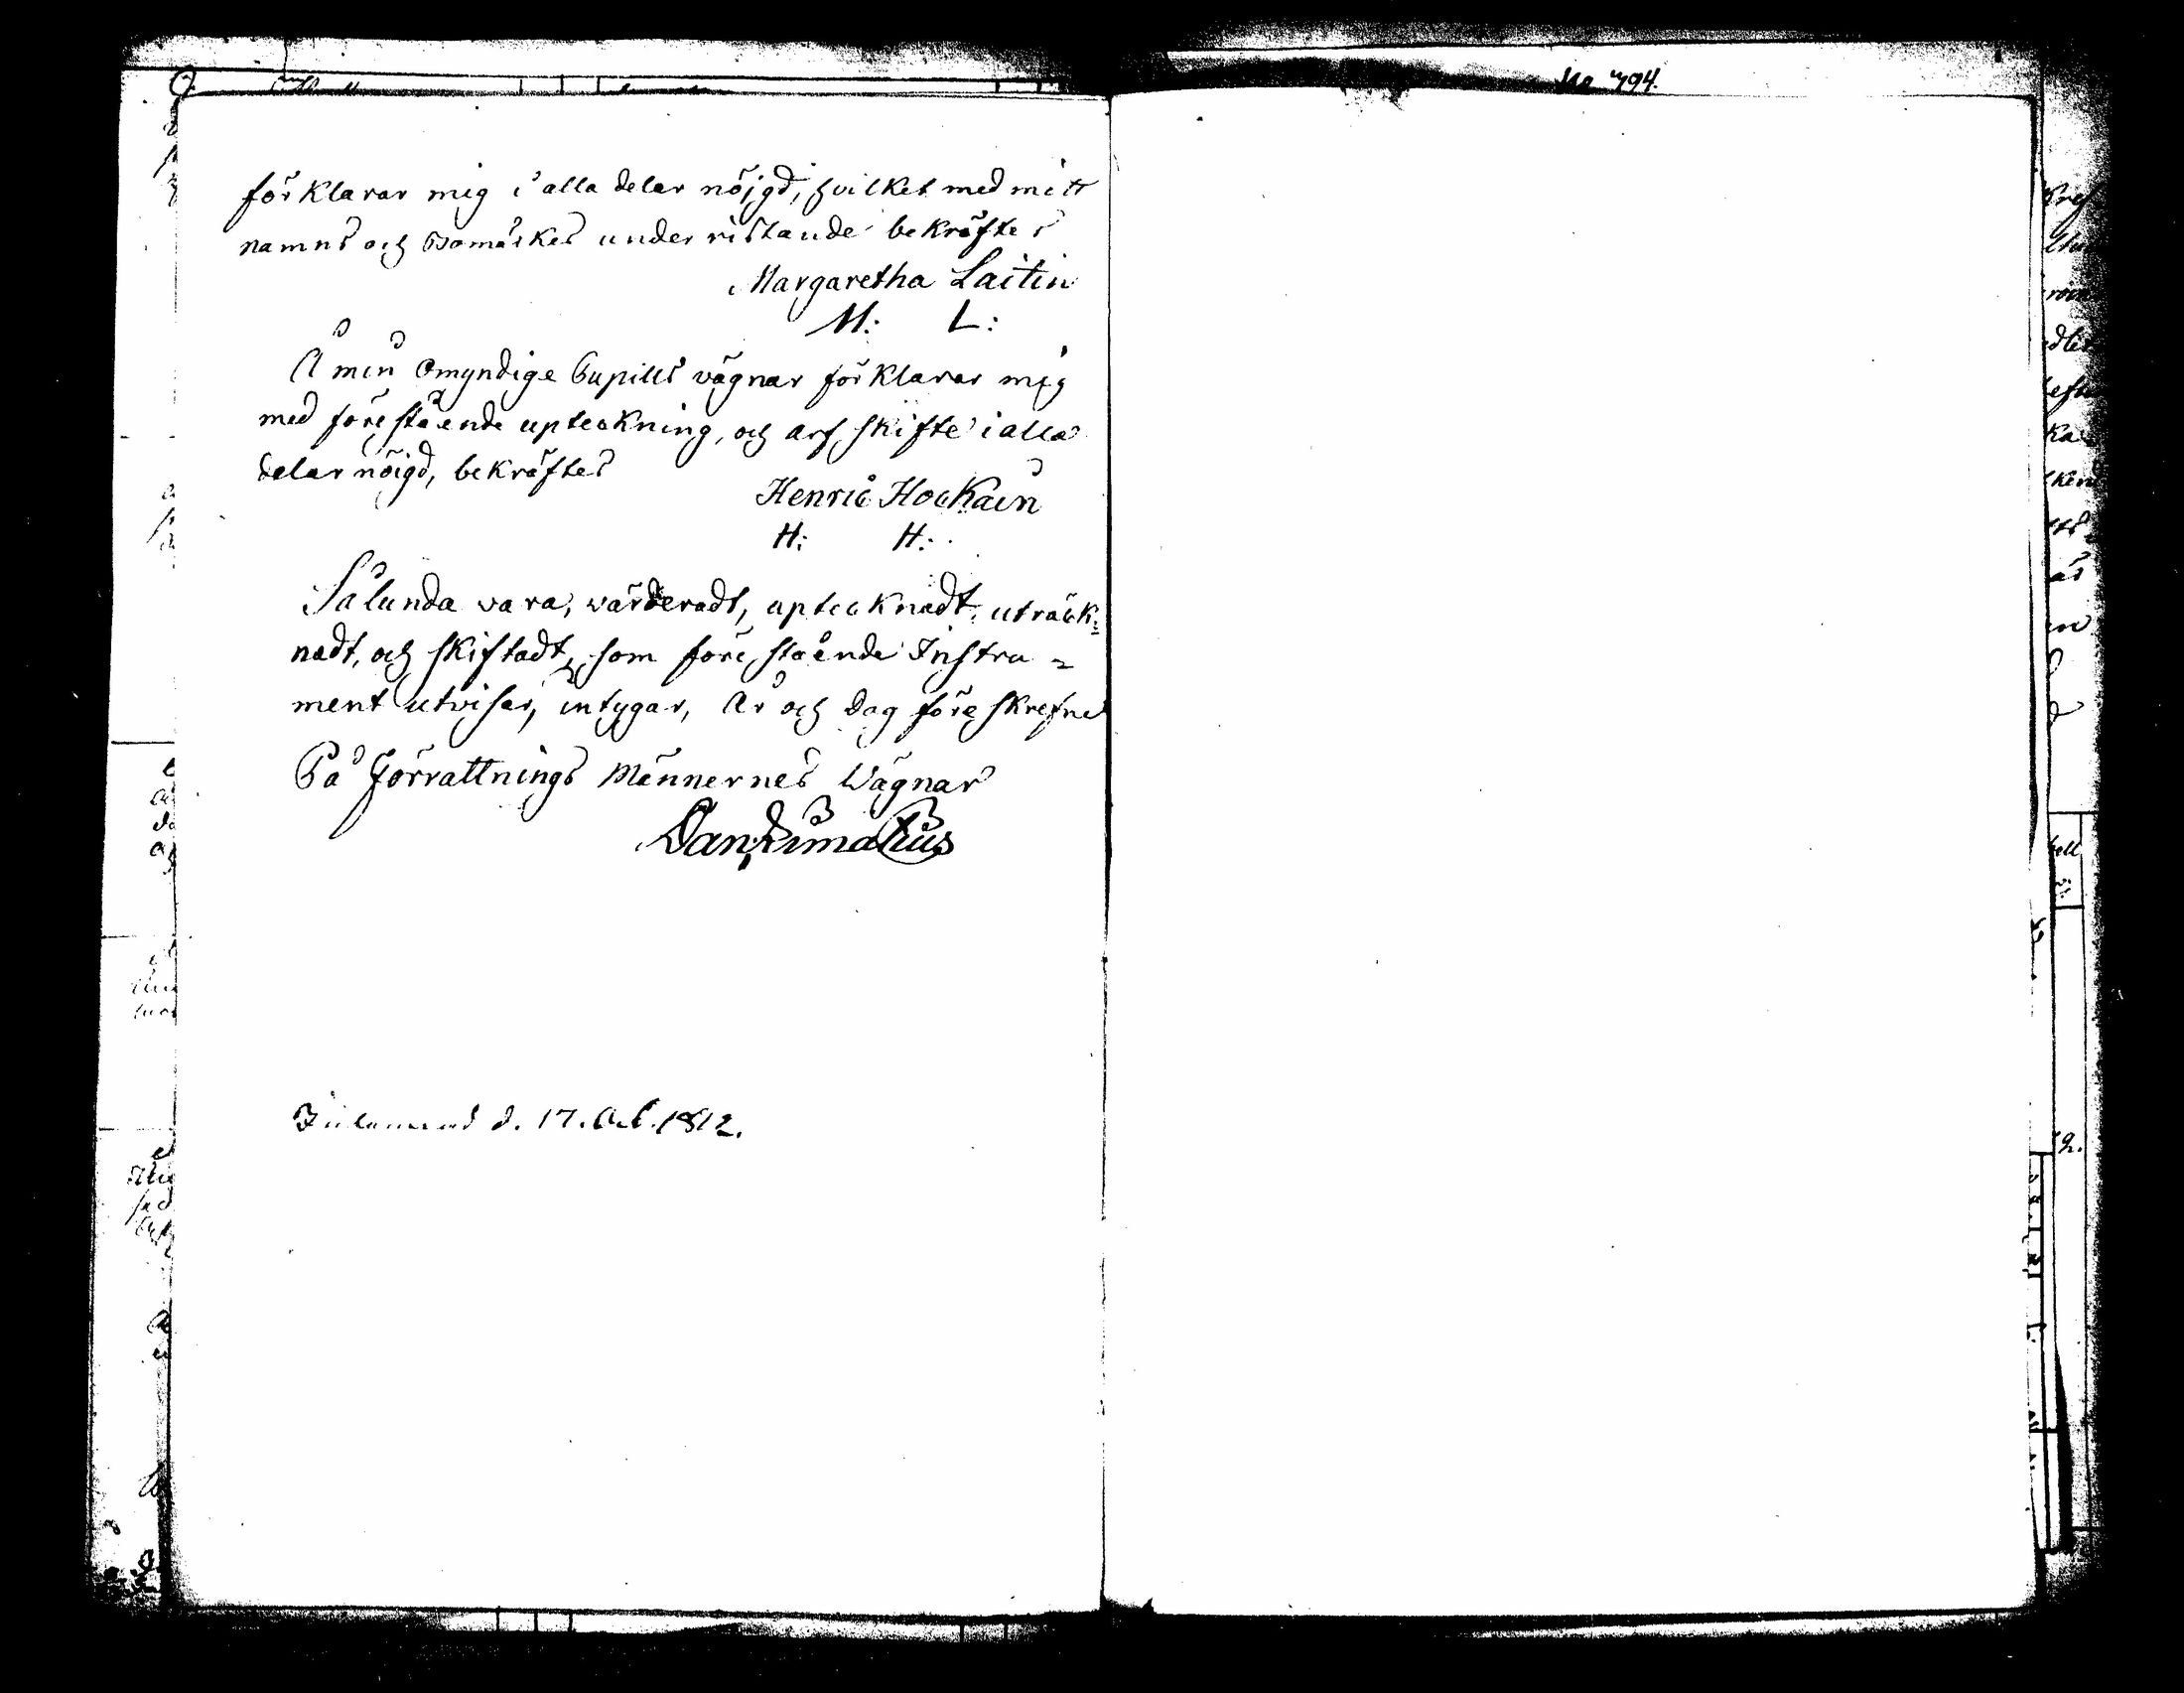 No 794.
förklarar mig i alla delar nöjgd, hvilket med mitt
namns och Bomärkes underristande bekräftes
Margaretha Laitin
M: L:
Å min omyndige Pupills vägnar förklarar mig
med förestående upteckning, och arf skifte i alla
delar nöigd, bekräftes
Henric Hockain
H: H:
Sålunda vara, värderadt, uptecknadt, uträck=
nadt, och skiftadt, som förestående Instru=
ment utviser, intygar, År och dag föreskrefne
På Förrattnings Männernes Wägnar
Dan
d. 17. Oct. 1812.